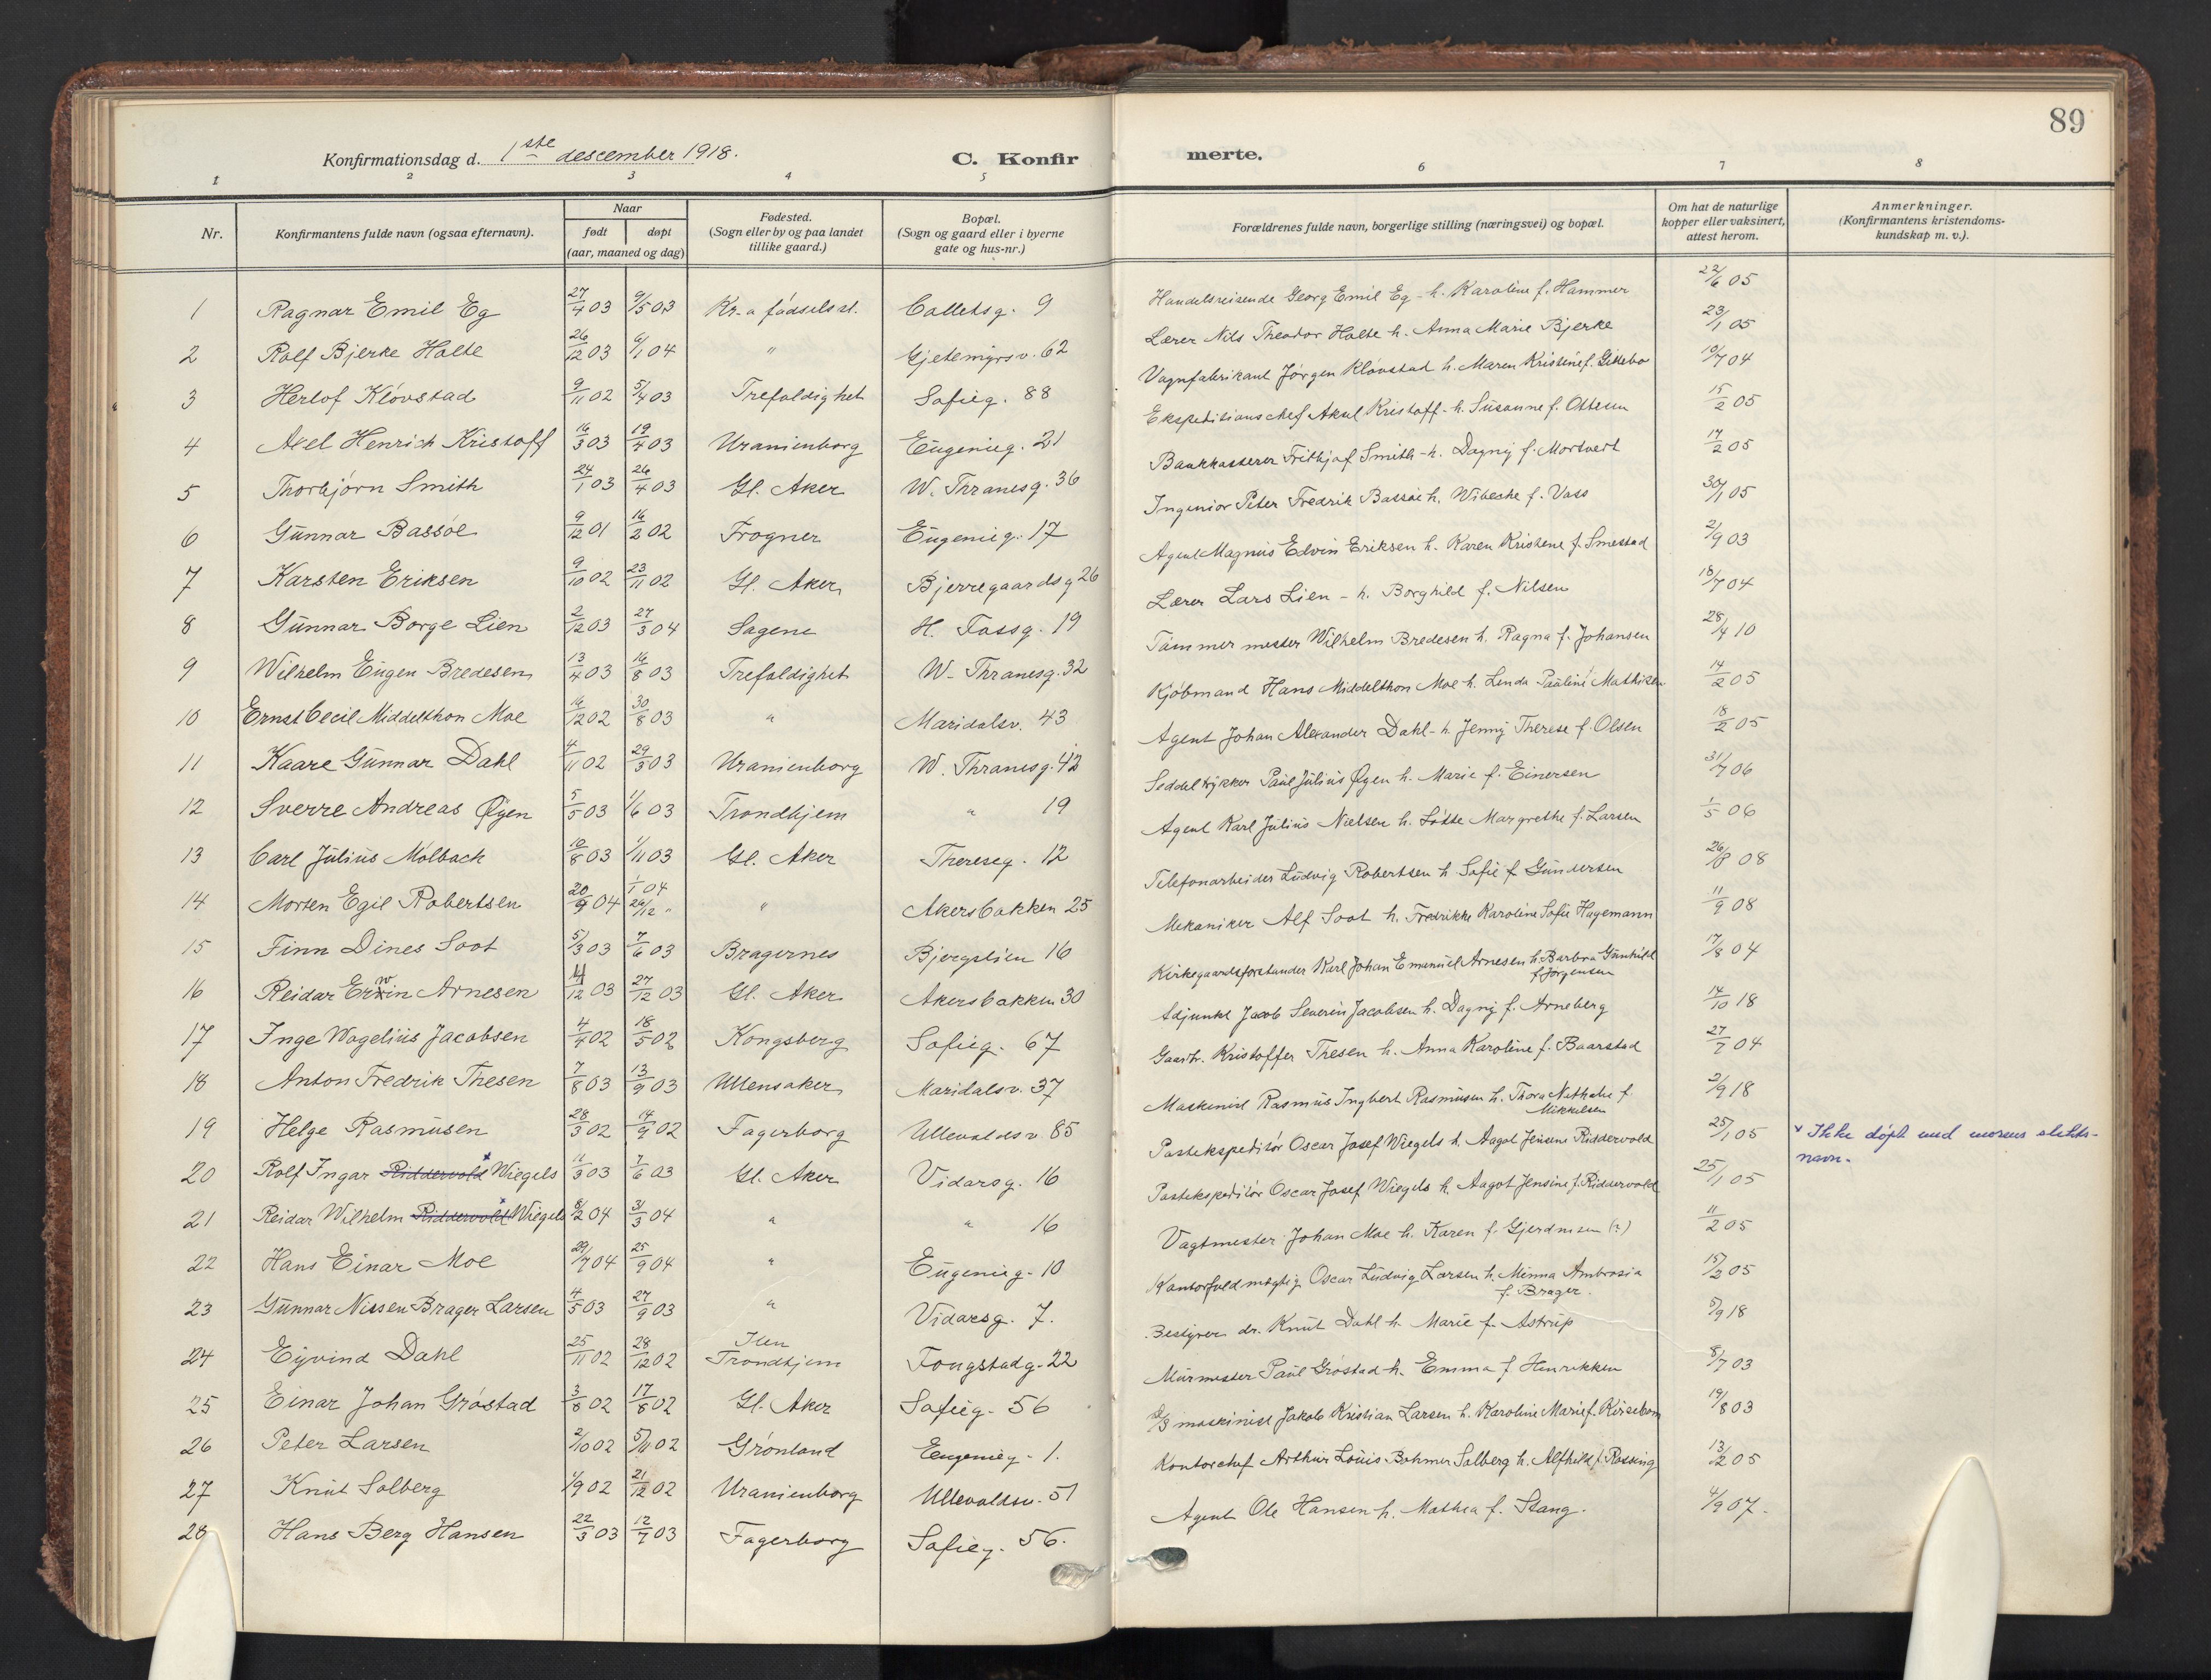 89
Konfirmationsdag d. 1ste descember 1918. C. Konfir merte.
1 2 3 4 5 6 7 8
Nr. Konfirmantens fulde navn (ogsaa efternavn). Naar født døpt (aar, maaned og dag) Fødested. (Sogn eller by og paa landet tillike gaard.) Bopæl. (Sogn og gaard eller i byerne gate og hus-nr.) Forældrenes fulde navn, borgerlige stilling (næringsvei) og bopæl. Om hat de naturlige kopper eller vaksinert, attest herom. Anmerkninger. (Konfirmantens kristendoms-kundskap m. v.).
1 Ragnar Emil Eg 27/4 03 9/5 03 Kr.a fødselsst. Colletsg. 9 Handelsreisende Georg Emil Eg - h. Karoline f. Hammer 22/6 05
2 Rolf Bjerke Holte 26/12 03 6/1 04 " Gjetemyrsv. 62 Lærer Nils Theodor Holte h. Anna Marie Bjerke 23/1 05
3 Herlof Kløvstad 9/11 02 5/4 03 Trefoldighet Sofieg. 88 Vognfabrikant Jørgen Kløvstad h. Maren Kristine f. 19/7 04
4 Axel Henrich Kristoff 16/3 03 19/4 03 Uranienborg Eugenieg. 21 Ekspeditionschef Aksel Kristoff - h. Susanne f. Ottesen 15/2 05
5 Thorbjørn Smith 24/1 03 26/4 03 Gl. Aker W. Thranesg. 36 Bankkasserer Frithjof Smith - h. Dagny f. Mortvert 17/2 05
6 Gunnar Bassøe 9/12 01 16/2 02 Frogner Eugenieg. 17 Ingeniør Peter Fredrik Bassøe h. Wibecke f. Vass 30/1 05
7 Karsten Eriksen 9/10 02 23/11 02 Gl. Aker Bjerregaardsg 26 Agent Magnus Edvin Eriksen h. Karen Kristene f. Smestad 2/9 03
8 Gunnar Borge Lien 2/12 03 27/3 04 Sagene H. Fossg. 19 Lærer Lars Lien - h. Borghild f. Nilsen 18/7 04
9 Wilhelm Eugen Bredesen 13/4 03 16/8 03 Trefoldighet W. Thranesg. 32 Tømmermester Wilhelm Bredesen h. Ragna f. Johansen 28/4 10
10 Ernst Cecil Middelthon Moe 16/12 02 30/8 03 " Maridalsv. 43 Kjøbmand Hans Middelthon Moe h. Linda Pauline Mathisen 14/2 05
11 Kaare Gunnar Dahl 4/11 02 29/3 03 Uranienborg W. Thranesg. 42 Agent Johan Alexander Dahl - h. Jenny Therese f. Olsen 18/2 05
12 Sverre Andreas Øyen 5/5 03 1/6 03 Trondhjem " 19 Seddeltrykker Paul Julius Øyen h. Marie f. Einersen 31/7 06
13 Carl Julius Mølbach 10/8 03 1/11 03 Gl. Aker Thereseg. 12 Agent Karl Julius Nielsen h. Lotte Margrethe f. Larsen 1/5 06
14 Morten Egil Robertsen 20/9 04 1/1 04 26/12 " " Akersbakken 25 Telefonarbeider Ludvig Robertsen h. Sofie f. Gundersen 26/8 08
15 Finn Dines Soot 5/3 03 7/6 03 Bragernes Bjergslien 16 Mekaniker Alf Soot h. Fredrikke Karoline Sofie Hagemann 11/9 08
16 Reidar Erwin Arnesen 11/12 03 27/12 03 Gl. Aker Akersbakken 30 Kirkegaardsforstander Karl Johan Emanuel Arnesen h. Barbra Gunhild f. Jørgensen 17/8 04
17 Inge Wogelius Jacobsen 4/4 02 18/5 02 Kongsberg Sofieg. 67 Adjunkt Jacob Severin Jacobsen h. Dagny f. Arneberg 14/10 18
18 Anton Fredrik Thesen 7/8 03 13/9 03 Ullensaker Maridalsv. 37 Gaardbr. Kristoffer Thesen h. Anna Karoline f. Baarstad 27/7 04
19 Helge Rasmusen 28/3 02 14/9 02 Fagerborg Ullevaldsv. 85 Maskinist Rasmus Ingbert Rasmusen h. Thora Nathalie f. Mikkelsen 2/9 18
20 Rolf Ingar Riddervold* Wiegels 11/3 03 7/6 03 Gl. Aker Vidarsg. 16 Postekspeditør Oscar Josef Wiegels h. Aagot Jensine Riddervold 25/1 05 * Ikke døpt med morens slekts-
navn.
21 Reidar Wilhelm Riddervold* Wiegels 8/2 04 31/3 04 " " 16 Postekspeditør Oscar Josef Wiegels h. Aagot Jensine f. Riddervold 25/1 05
22 Hans Einar Moe 29/7 04 25/9 04 " Eugenieg. 10 Vagtmester Johan Moe h. Karen f. Gjerdmen (?) 11/2 05
23 Gunnar Nissen Brager Larsen 4/5 03 27/9 03 " Vidarsg. 7. Kontorfuldmægtig Oscar Ludvig Larsen h. Minna Ambrosia f. Brager. 15/2 05
24 Eyvind Dahl 25/11 02 28/12 02 Ilen Trondhjem Fougstadg. 22 Bestyrer dr. Knut Dahl h. Marie f. Astrup 5/9 18
25 Einar Johan Grøstad 3/8 02 17/8 02 Gl. Aker Sofieg. 56 Murmester Paul Grøstad h. Emma f. Henrikken 8/7 03
26 Peter Larsen 2/10 02 5/11 02 Grønland Eugenieg. 1. maskinist Jakob Kristian Larsen h. Karoline Marie f. Kirsebom 19/8 03
27 Knut Solberg 1/9 02 21/12 02 Uranienborg Ullevoldsv. 51 Kontorchef Arthur Louis Bohmer Solberg h. Alfhild f. Rossing 13/2 05
28 Hans Berg Hansen 22/3 03 12/7 03 Fagerborg Sofieg. 56. Agent Ole Hansen h. Mathea f. Stang. 4/9 07.